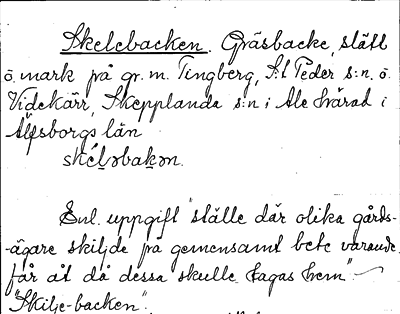 Skelebacken. Gräsbacke, slätt
ö. mark på gr. m. Tingberg, S:t Peder s:n. ö.
Videkärr, Skepplanda s:n i Ale härad i
Älfsborgs län
skéləbakən.
Enl. uppgift "ställe där olika gårds-
-ägare skiljde på gemensamt bete varande
får åt då dessa skulle tagas hem" –
"Skilje-backen".